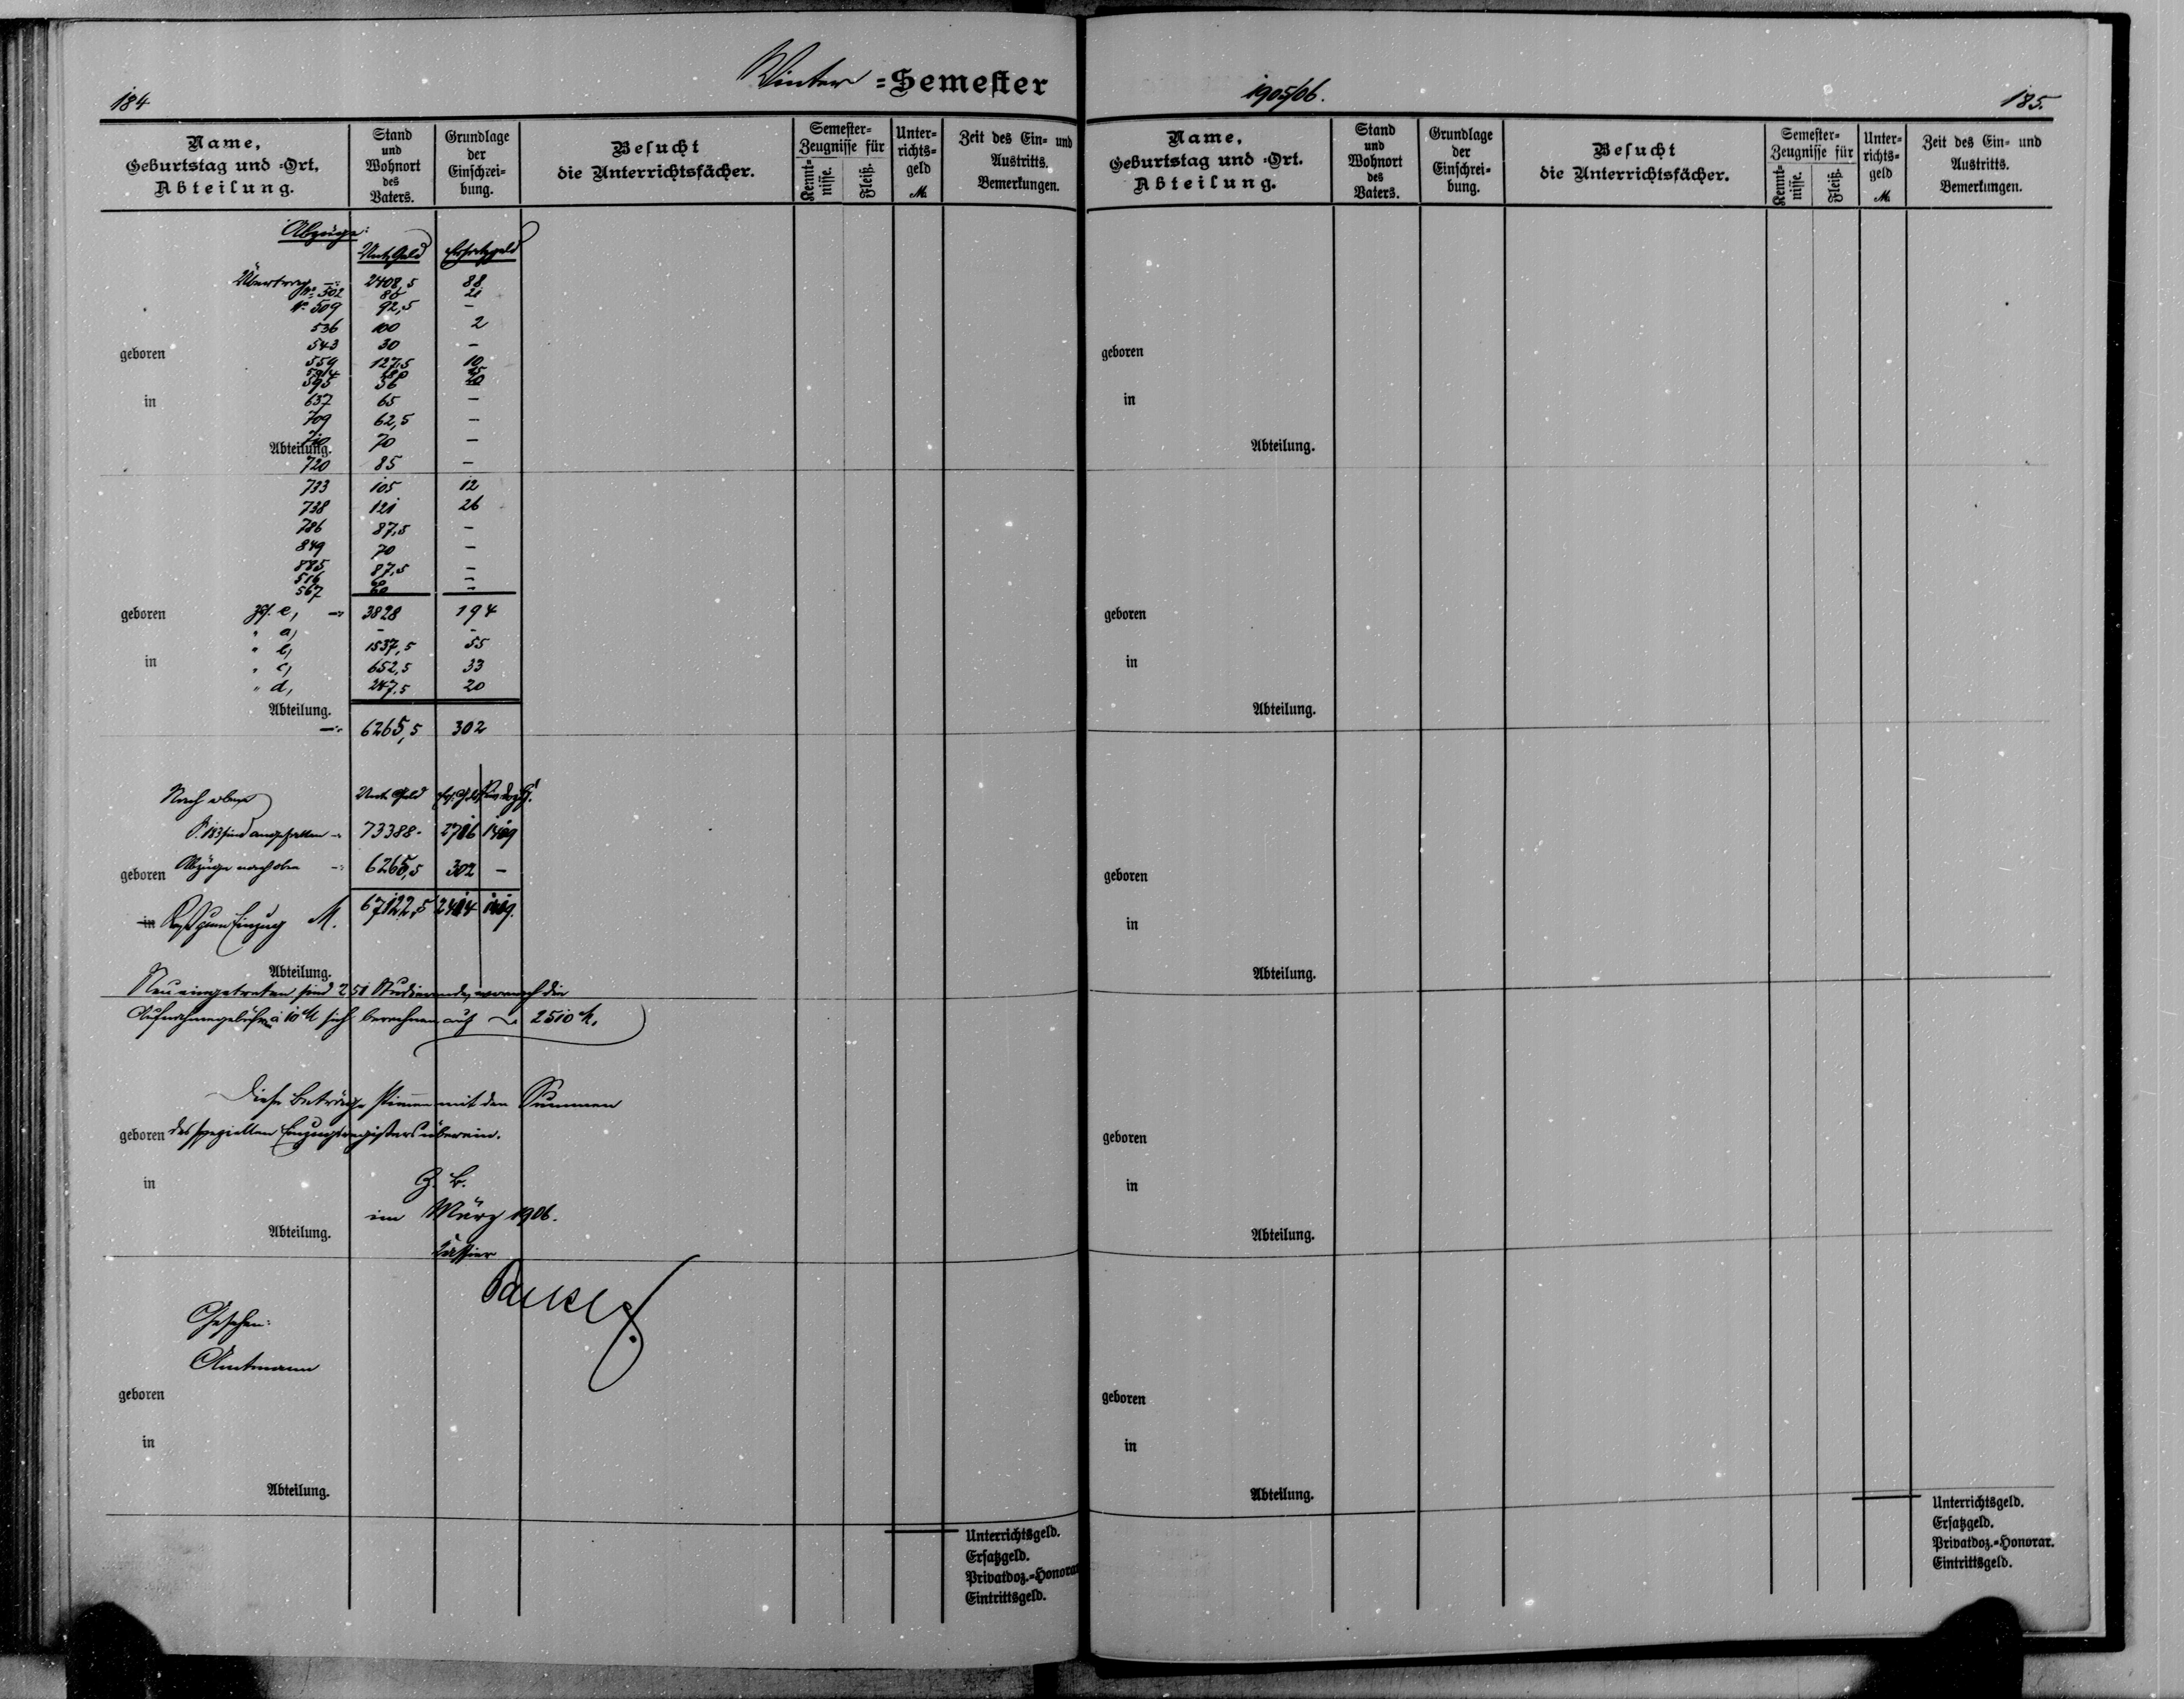 184
Winter =Semester
Name,
Geburtstag und =Ort,
Abteilung.
Stand
und
Wohnort
des
Vaters.
Grundlage
der
Einschrei=
bung.
Besucht
die Unterrichtsfächer.
Semester=
Zeugnisse für
Kennt=
nisse.
Fleiß.
Unter=
richts=
geld
M.
Zeit des Ein= und
Austritts.
Bemerkungen.
Abzüge:
Unt. Geld Ersatzgeld
Übertrag -:- 2408,5 88
No. 502 80 21
No. 509 92,5 -
536 100 2
543 30 -
geboren
559 127,5 10
595 56
in
637 65 -
709 62,5 -
710 70 -
Abteilung.
720 85 -
733 105 12
738 121 26
786 87,5 -
849 70 -
885 87,5 -
516 60 -
567 60 -
geboren
zs. e, -:- 3828 194
" a, - -
" b, 1537,5 55
in
" c, 652,5 33
" d, 247,5 20
Abteilung.
-:- 6265,5 302
Nach oben Unt. Geld
S. 183 sind angefallen -:- 73388.
geboren
Abzüge nach oben -:- 6265,5 302 -
in
Rest zum Einzug M. 67122,5
Abteilung.
Neu eingetreten sind 251 Studierende, wonach die
Aufnahmegebühren à 10 M sich berechnen auf 2510 M.
Diese Beträge stimmen mit den Summen
geboren
des speziellen Einzugsregisters überein.
in
Z. B.
im März 1906.
Abteilung.
Kassier
Gesehen:
Amtmann
geboren
in
Abteilung.
Unterrichtsgeld.
Ersatzgeld.
Privatdoz.=Honorar
Eintrittsgeld.
1905/06.
185.
Name,
Geburtstag und =Ort.
Abteilung.
Stand
und
Wohnort
des
Vaters.
Grundlage
der
Einschrei=
bung.
Besucht
die Unterrichtsfächer.
Semester=
Zeugnisse für
Kennt=
nisse.
Fleiß.
Unter=
richts=
geld
M.
Zeit des Ein= und
Austritts.
Bemerkungen.
geboren
in
Abteilung.
geboren
in
Abteilung.
geboren
in
Abteilung.
geboren
in
Abteilung.
geboren
in
Abteilung.
Unterrichtsgeld.
Ersatzgeld.
Privatdoz.=Honorar.
Eintrittsgeld.